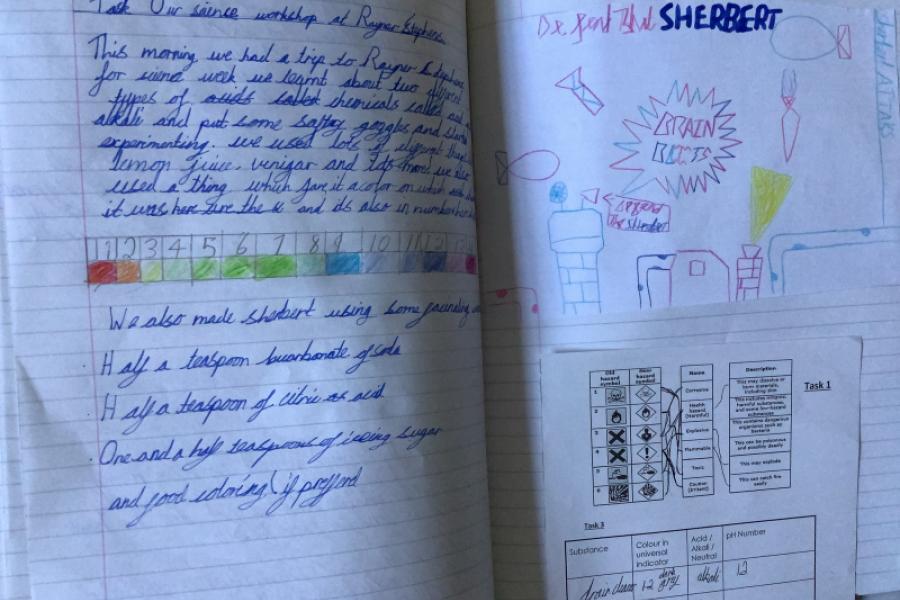 Task Our science workshop at Rayner Stephens
This morning we had a trip to Rayner Stephens
for science week we learnt about two different
types of acids called chemicals called acid
alkali and put some saftey goggles and started
experimenting. we used lots of different things
lemon juice, venigar and more we also
used a thing which gave it a color on which
it was here are the and it's also in number
1 2 3 4 5 6 7 8 9 10 11 12 13
We also made sherbert using some
Half a teaspoon bicarbonate of soda
Half a teaspoon of citric acid
One and a half teaspoons of iceing sugar
and food coloring if preffered
SHERBERT
BRAIN
Task 1
Old hazard symbol
New hazard symbol
Name
Description
1
2
3
4
5
6
Corrosive
Health hazard (Harmful)
Explosive
Flammable
Toxic
Caution (Irritant)
This may dissolve or burn materials, including skin
This includes irritants, harmful substances, and some low-hazard substances
This contains dangerous organisms such as bacteria
This can be poisonous and possibly deadly
This may explode
This can catch fire easily
Task 3
Substance
Colour in universal indicator
Acid / Alkali / Neutral
pH Number
drain cleaner 12 dark grey alkali 12